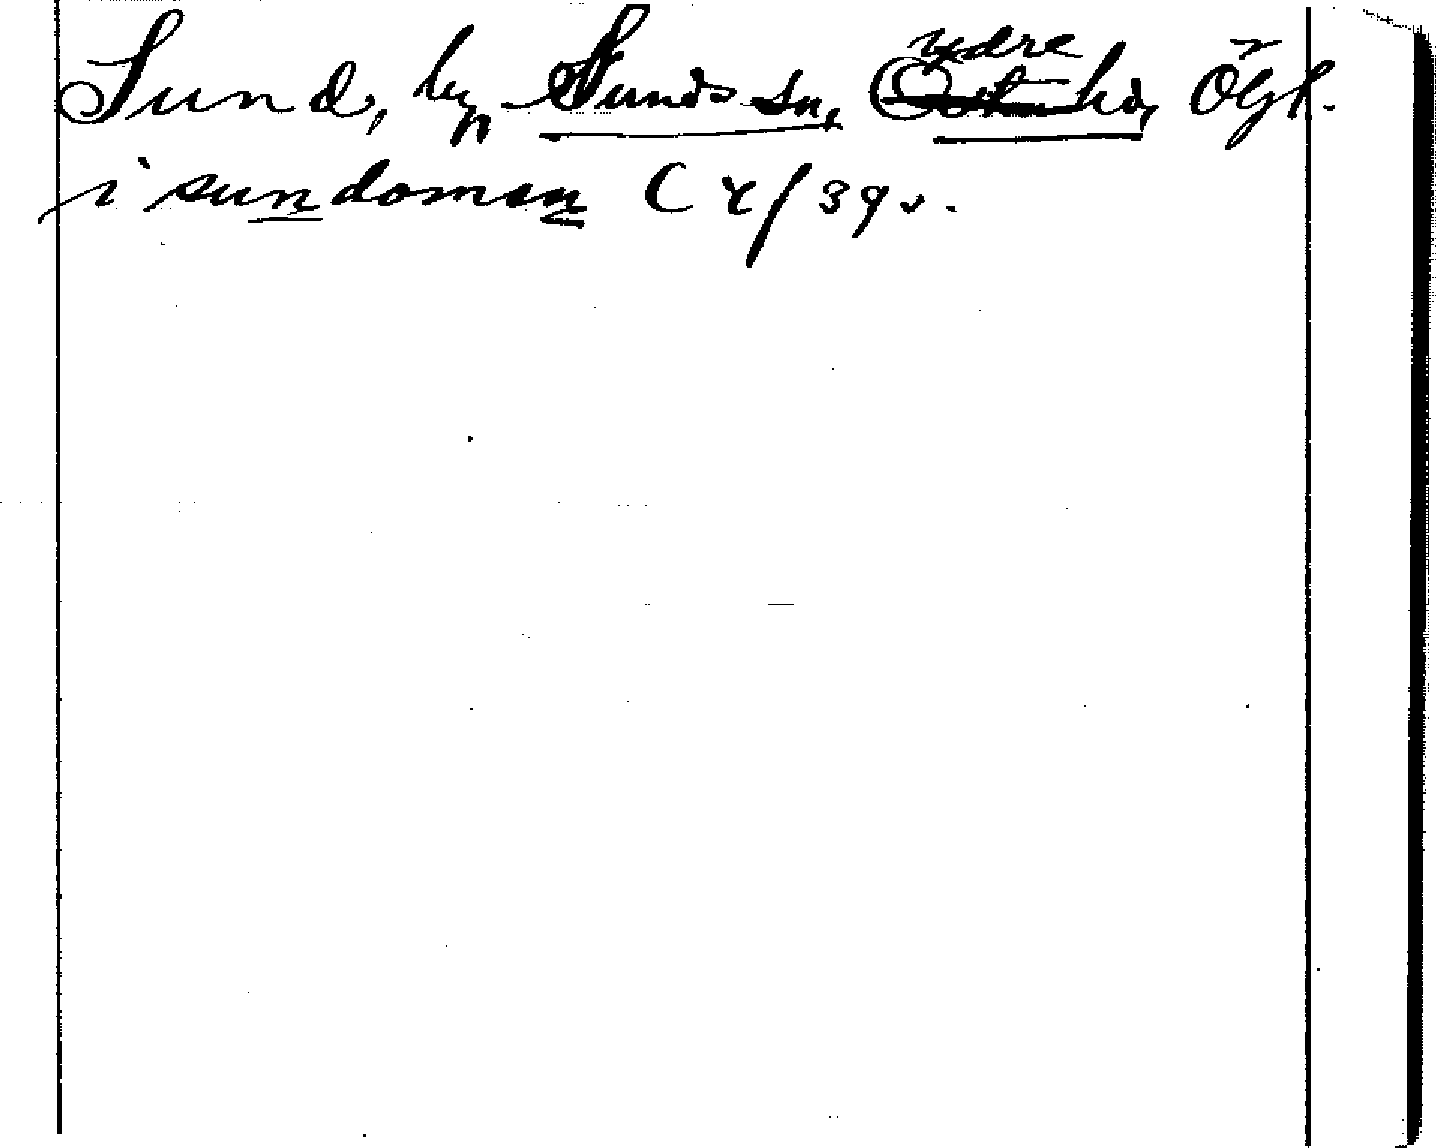 Sund, by, Sunds sn, Ydre hd, Ögl.
i sundomen C 4/39 v.